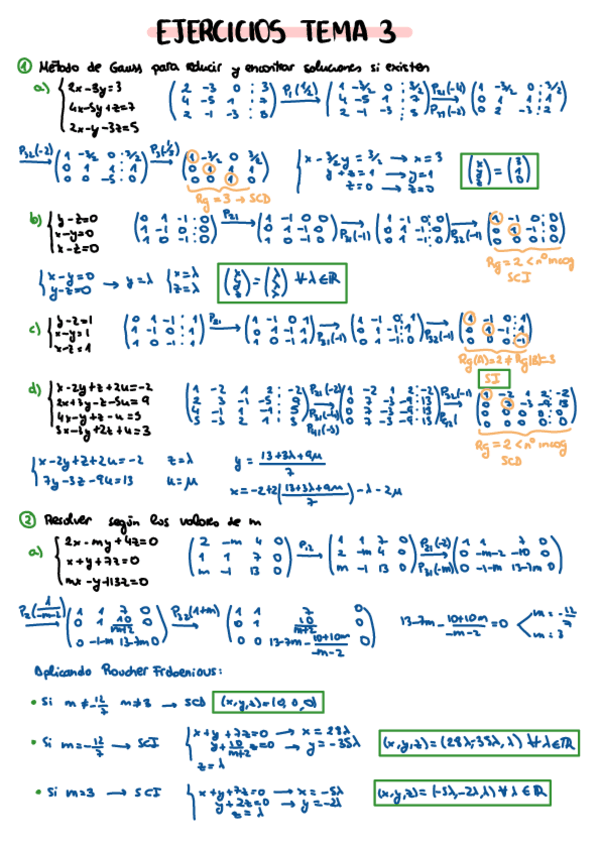 EJERCICIOS TEMA 3
① Método de Gauss para reducir y encontrar soluciones si existen
a) { 2x-3y=3
4x-5y+z=7
2x-y-3z=5
(2 -3 0 : 3
4 -5 1 : 7
2 -1 -3 : 5)
P₁(1/2)
(1 -3/2 0 : 3/2
4 -5 1 : 7
2 -1 -3 : 5)
P₂₁(-4)
P₃₁(-2)
(1 -3/2 0 : 3/2
0 1 1 : 1
0 2 -3 : 2)
P₃₂(-2)
(1 -3/2 0 : 3/2
0 1 1 : 1
0 0 -5 : 0)
(1 -3/2 0 3/2
0 1 1 1
0 0 1 0)
Rg = 3 → SCD
{ x - 3/2 y = 3/2 → x = 3
y + z = 1 → y = 1
z = 0 → z = 0
(x y z) = (3 1 0)
b) { y-z=0
x-y=0
x-z=0
(0 1 -1 : 0
1 -1 0 : 0
1 0 -1 : 0)
P₂₁
(1 -1 0 0
0 1 -1 0
1 0 -1 0)
P₃₁(-1)
(1 -1 0 : 0
0 1 -1 : 0
0 1 -1 : 0)
P₃₂(-1)
(1 -1 0 : 0
0 1 -1 : 0
0 0 0 : 0)
Rg = 2 < nº incog
SCI
{ x-y=0
y-z=0
→ y=λ
{ x=λ
z=λ
(x y z) = (λ λ λ) ∀λ∈ℝ
c) { y-z=1
x-y=1
x-z=1
(0 1 -1 : 1
1 -1 0 : 1
1 0 -1 : 1)
P₂₁
(1 -1 0 1
0 1 -1 1
1 0 -1 1)
P₃₁(-1)
(1 -1 0 : 1
0 1 -1 : 1
0 1 -1 : 0)
P₃₂(-1)
(1 -1 0 : 1
0 1 -1 : 1
0 0 0 : -1)
Rg(A)=2 ≠ Rg(B)=3
SI
d) { x-2y+z+2u=-2
2x+3y-z-5u=9
4x-y+z-u=5
5x-3y+2z+u=3
P₂₁(-2)
P₃₁(-4)
P₄₁(-5)
P₃₂(-1)
Rg = 2 < nº incog
SCD
{ x-2y+z+2u=-2
7y-3z-9u=13
z=λ
u=μ
y = (13+3λ+9μ)/7
x=-2+2((13+3λ+9μ)/7)-λ-2μ
② Resolver según los valores de m
a) { 2x-my+4z=0
x+y+7z=0
mx-y+13z=0
(2 -m 4 0
1 1 7 0
m -1 13 0)
P₁₂
(1 1 7 0
2 -m 4 0
m -1 13 0)
P₂₁(-2)
P₃₁(-m)
(1 1 7 0
0 -m-2 -10 0
0 -1-m 13-7m 0)
P₂(1/(-m-2))
(1 1 7 0
0 1 10/(m+2) 0
0 -1-m 13-7m 0)
P₃₂(1+m)
(1 1 7 0
0 1 10/(m+2) 0
0 0 13-7m-(10+10m)/(-m-2) 0)
13-7m-(10+10m)/(-m-2)=0
m=-12/7
m=3
Aplicando Roucher Frobenious:
• Si m≠-12/7 m≠3 → SCD (x,y,z)=(0,0,0)
• Si m=-12/7 → SCI
{ x+y+7z=0 → x=28λ
y+10/(m+2) z=0 → y=-35λ
z=λ
(x,y,z)=(28λ,-35λ,λ) ∀λ∈ℝ
• Si m=3 → SCI
{ x+y+7z=0 → x=-5λ
y+2z=0 → y=-2λ
z=λ
(x,y,z)=(-5λ,-2λ,λ) ∀λ∈ℝ